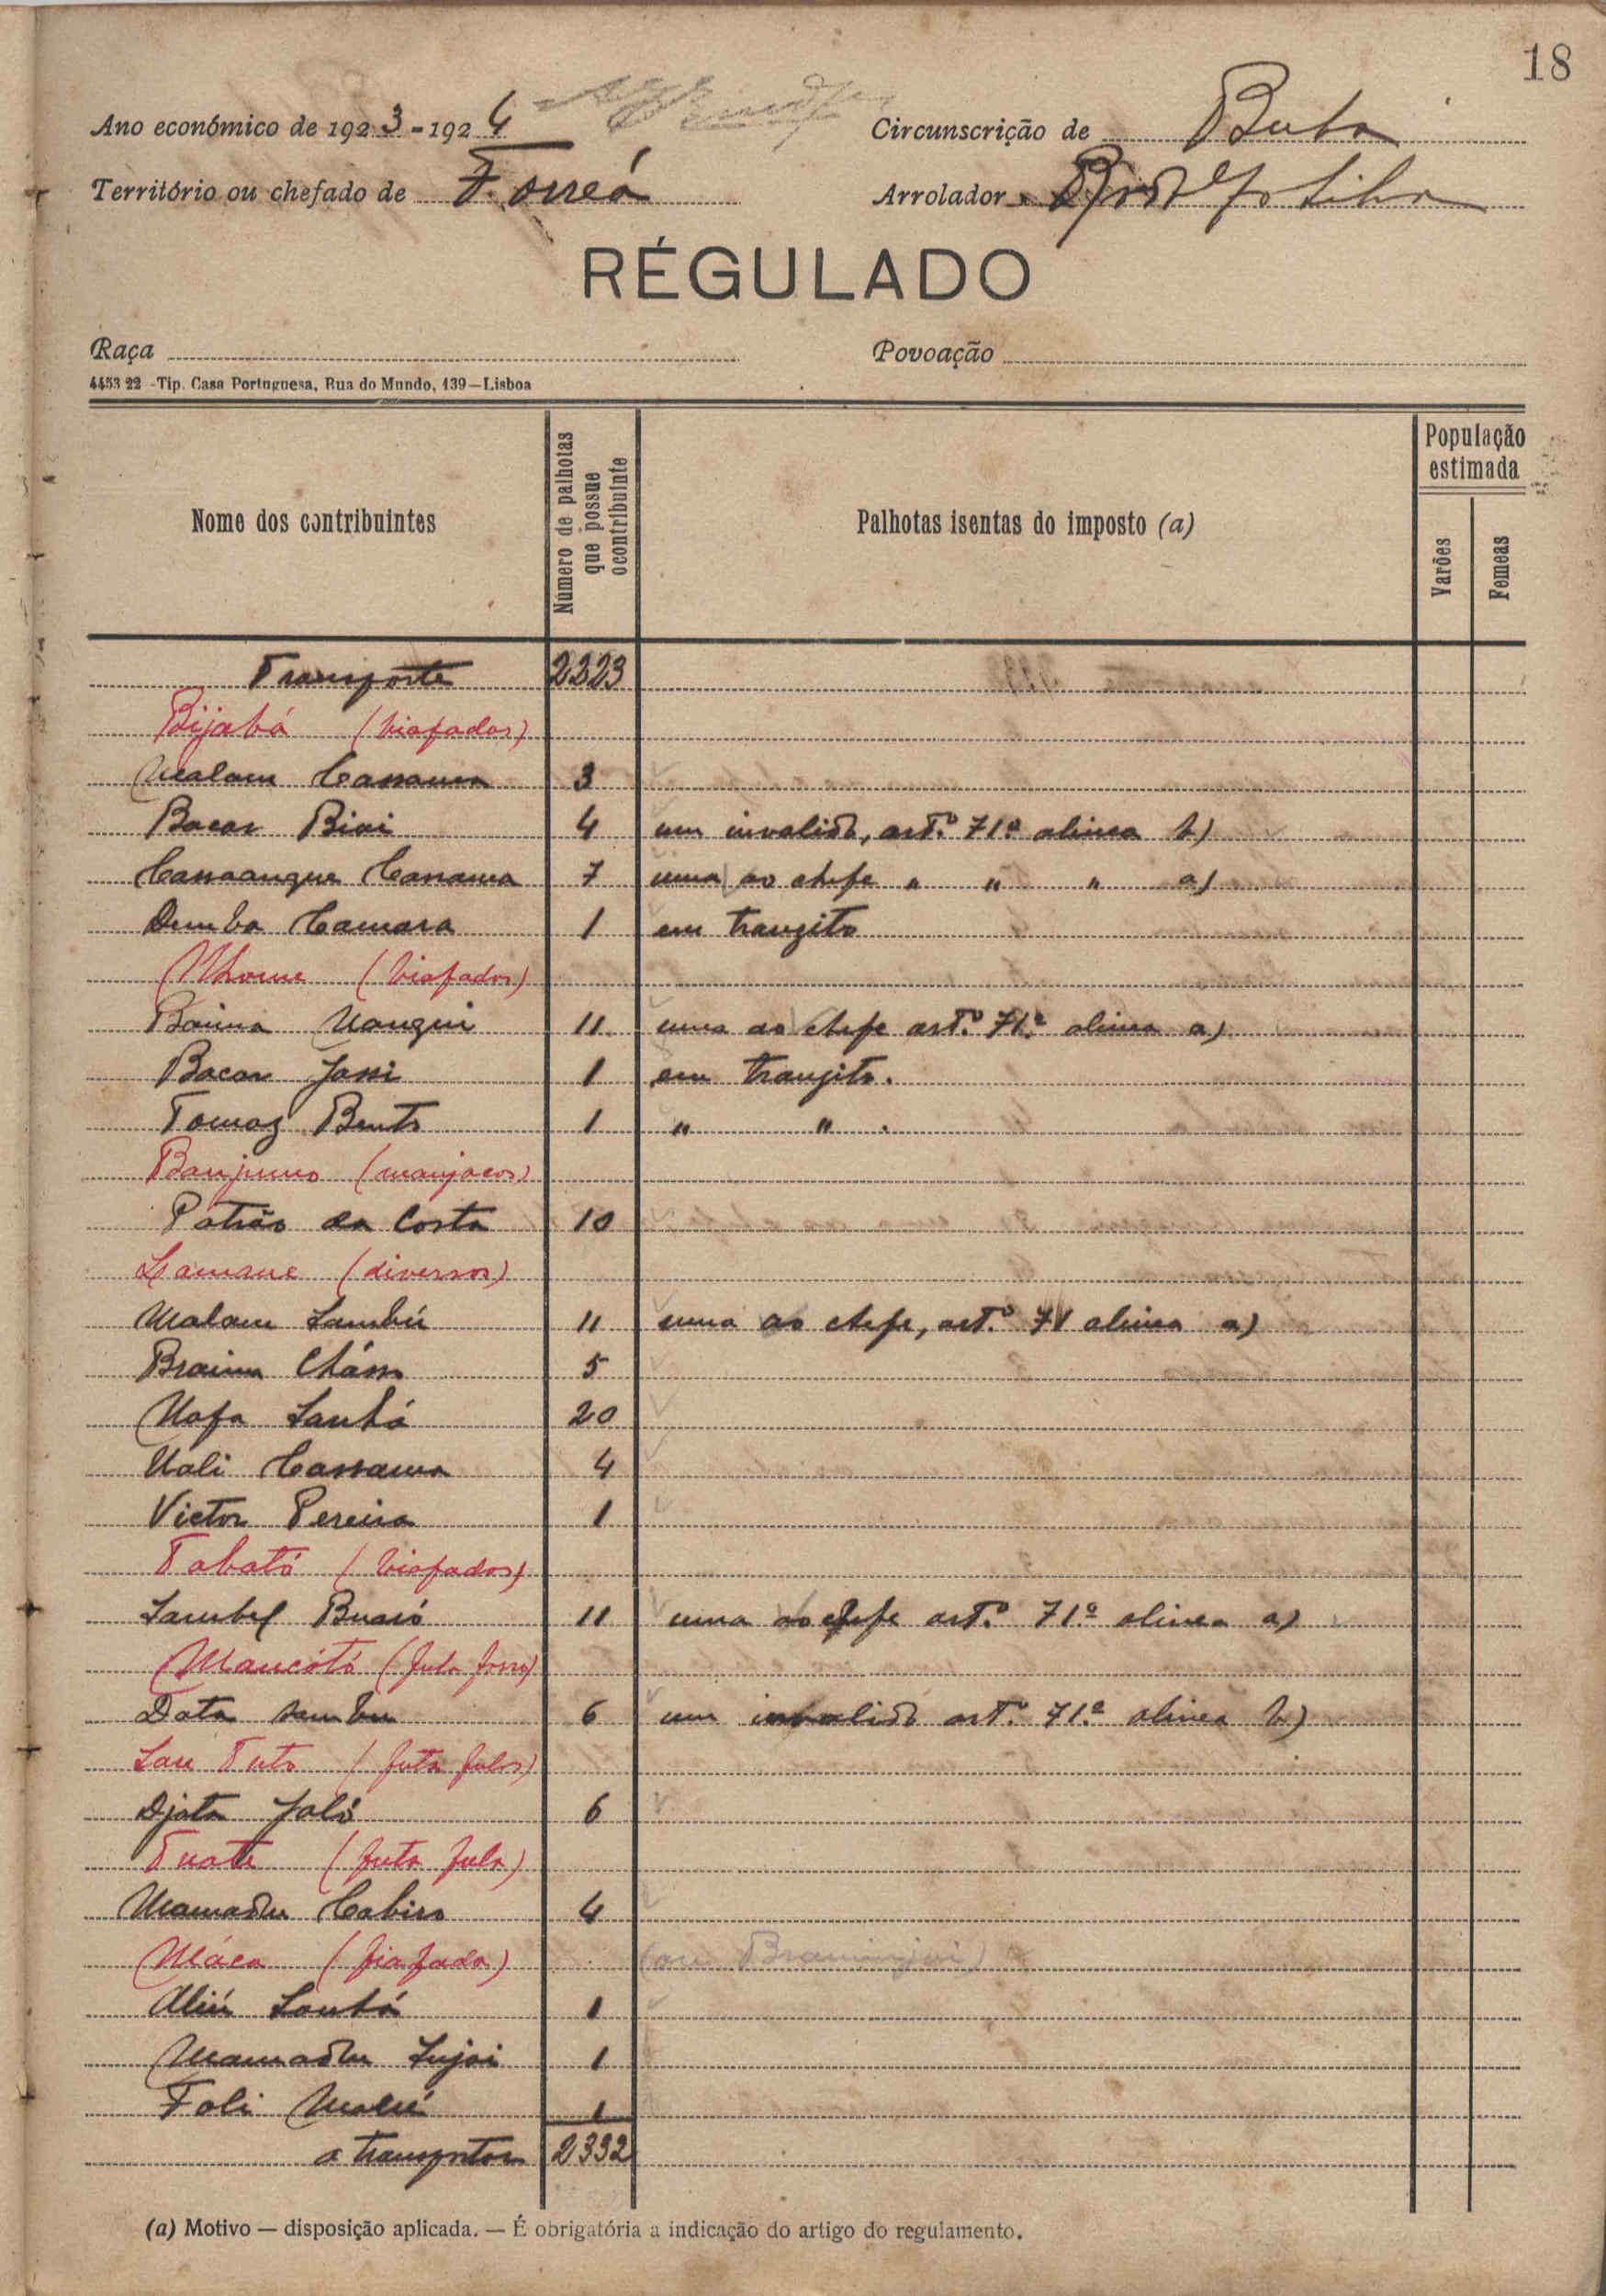 18
Ano económico de 1923-1924
Circunscrição de Buba
Território ou chefado de Forreá
Arrolador
RÉGULADO
Raça
Povoação
4453 22 - Tip. Casa Portuguesa, Rua do Mundo, 139—Lisboa
Nome dos contribuintes
Número de palhotas que possue ocontribuinte
Palhotas isentas do imposto (a)
População estimada
Varões
Femeas
Transporte 2223
Bijabá (biafadas)
Malam Cassama 3
Bacar Biai 4 um invalido, artº 71º alinea b)
Cassanque Cassama 7 uma ao chefe " " " a)
Demba Camara 1 em tranzito
Nhome (biafados)
Baima Nanqui 11 uma ao chefe artº 71º alinea a)
Bacar Jassi 1 em tranzito.
Tomaz Bento 1 " " .
Banjuno (manjacos)
Patrão da Costa 10
Samane (diversos)
Malam Sambú 11 uma ao chefe, artº 71 alinea a)
Braima Cháss 5
Nafa Sanhá 20
Uali Cassama 4
Victor Pereira 1
Tabató (biafadas)
Sambel Buaró 11 uma ao chefe artº 71º alinea a)
Mancótó (fula forro)
Data Sambu 6 um invalido artº 71º alinea b)
San Tuto (futa fulos)
Djata Jaló 6
Tuate (futa fula)
Mamadu Cabiro 4
Máca (fiafada) (ou
Aliú Sanhá 1
Mamadu Sujai 1
Foli Mané 1
a transportar 2332
(a) Motivo — disposição aplicada. — É obrigatória a indicação do artigo do regulamento.